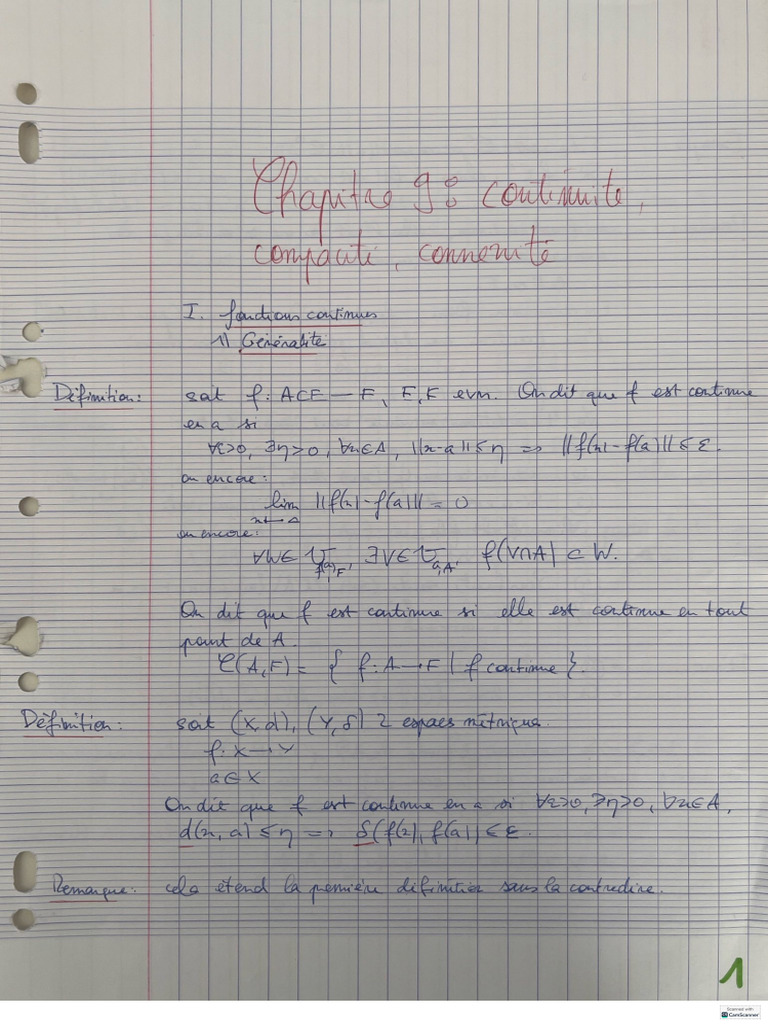 Chapitre 9: continuité,
compacité, connexité
I. fonctions continues
1) Généralité
Définition: soit f: A⊂E → F, E,F evn. On dit que f est continue
en a si
∀ε>0, ∃η>0, ∀x∈A, ||x-a|| ≤ η ⇒ ||f(x)-f(a)|| ≤ ε.
ou encore:
lim ||f(x)-f(a)|| = 0
x→a
ou encore:
∀W∈ V_{f(a),F}, ∃V∈ V_{a,A}, f(V∩A) ⊂ W.
On dit que f est continue si elle est continue en tout
point de A.
C(A,F) = { f: A→F | f continue }.
Définition: soit (X,d), (Y,δ) 2 espaces métriques.
f: X → Y
a ∈ X
On dit que f est continue en a si ∀ε>0, ∃η>0, ∀x∈A,
d(x,a) ≤ η ⇒ δ(f(x), f(a)) ≤ ε.
Remarque: cela étend la première définition sans la contredire.
1
Scanned with
CamScanner